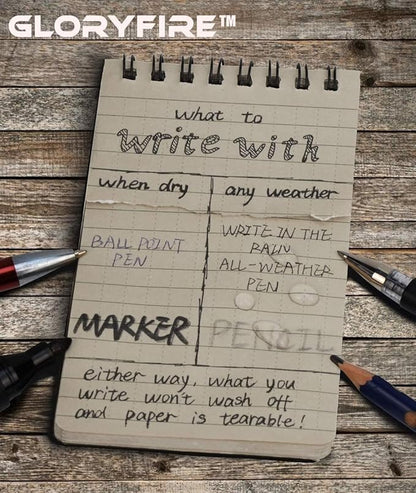 GLORYFIRE™
what to
write with
when dry
any weather
BALL POINT
PEN
WRITE IN THE
RAIN
ALL-WEATHER
PEN
MARKER
PENCIL
either way, what you
write won't wash off
and paper is tearable!